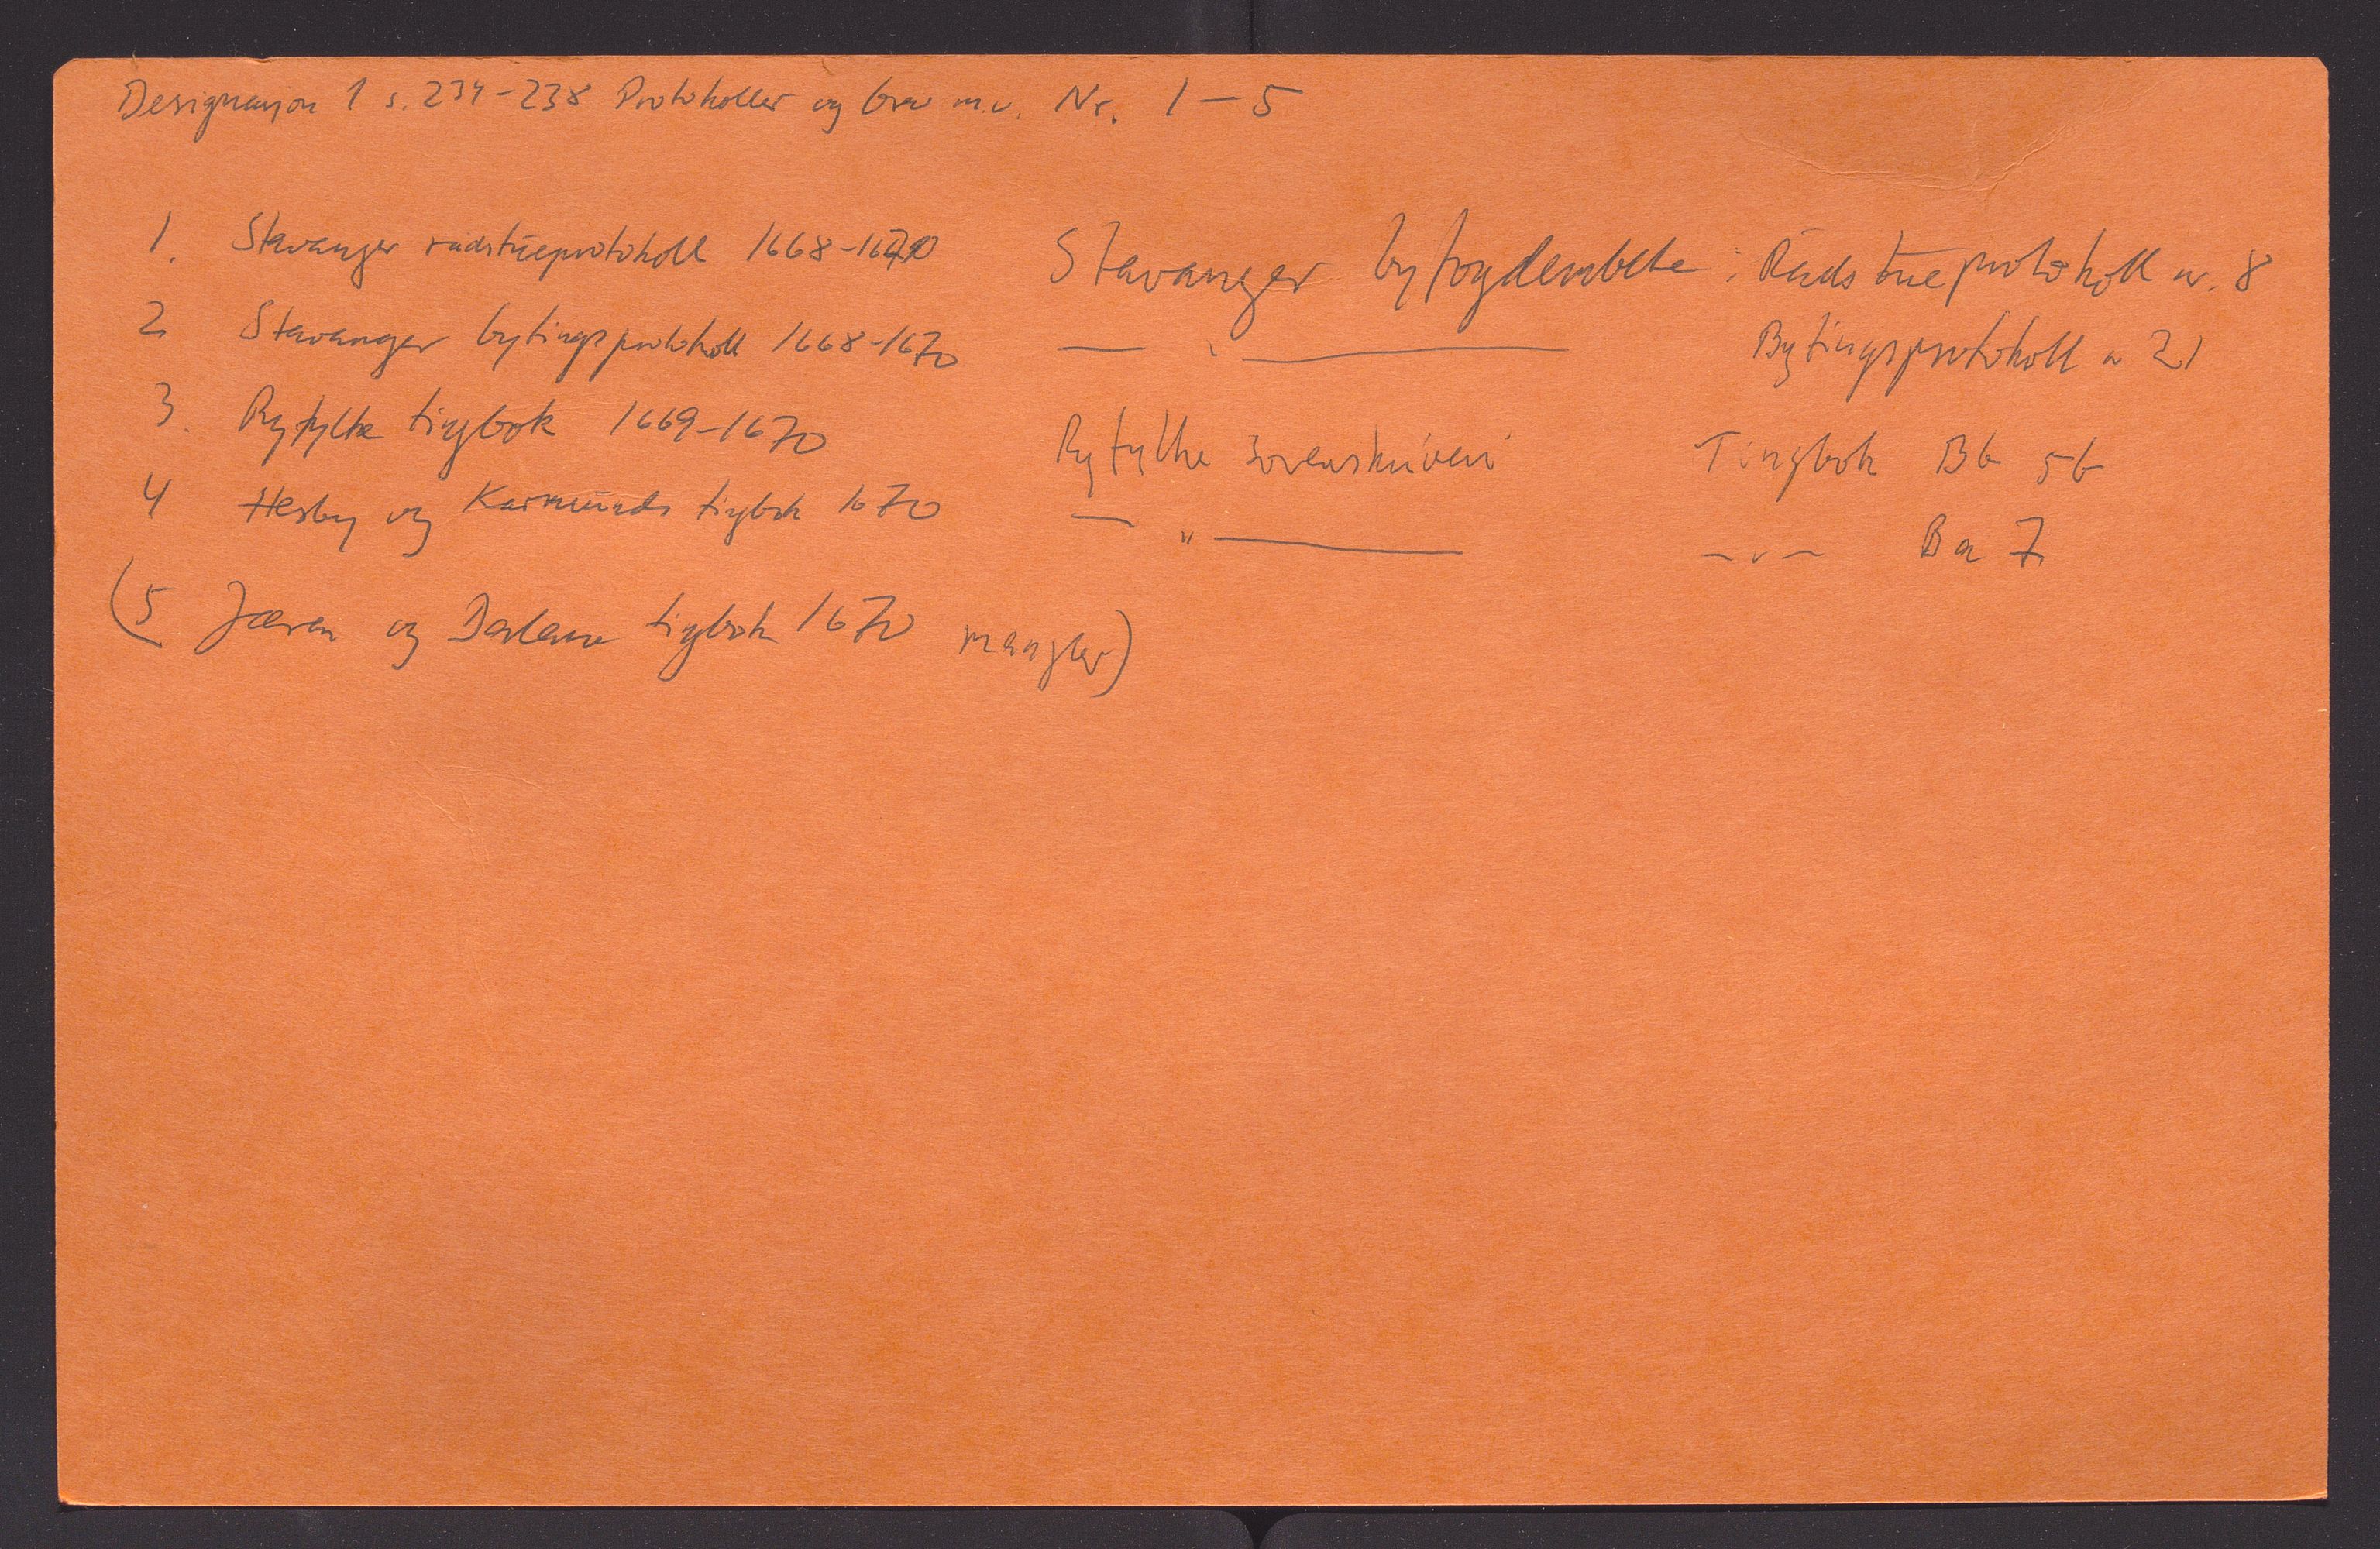 Designasjon 1 s. 234-238 Protokoller og brev m.v. Nr. 1 – 5
1. Stavanger rådstueprotokoll 1668-1670 Stavanger byfogdembete : Rådstueprotokoll nr. 8
2 Stavanger bytingsprotokoll 1668-1670 — " — Bytingsprotokoll nr 21
3. Ryfylke tingbok 1669-1670 Ryfylke sorenskriveri Tingbok Bb 5b
4 Hesby og Karmsunds tingbok 1670 — " — — " — Ba 7
(5 Jæren og Dalane tingbok 1670 mangler)